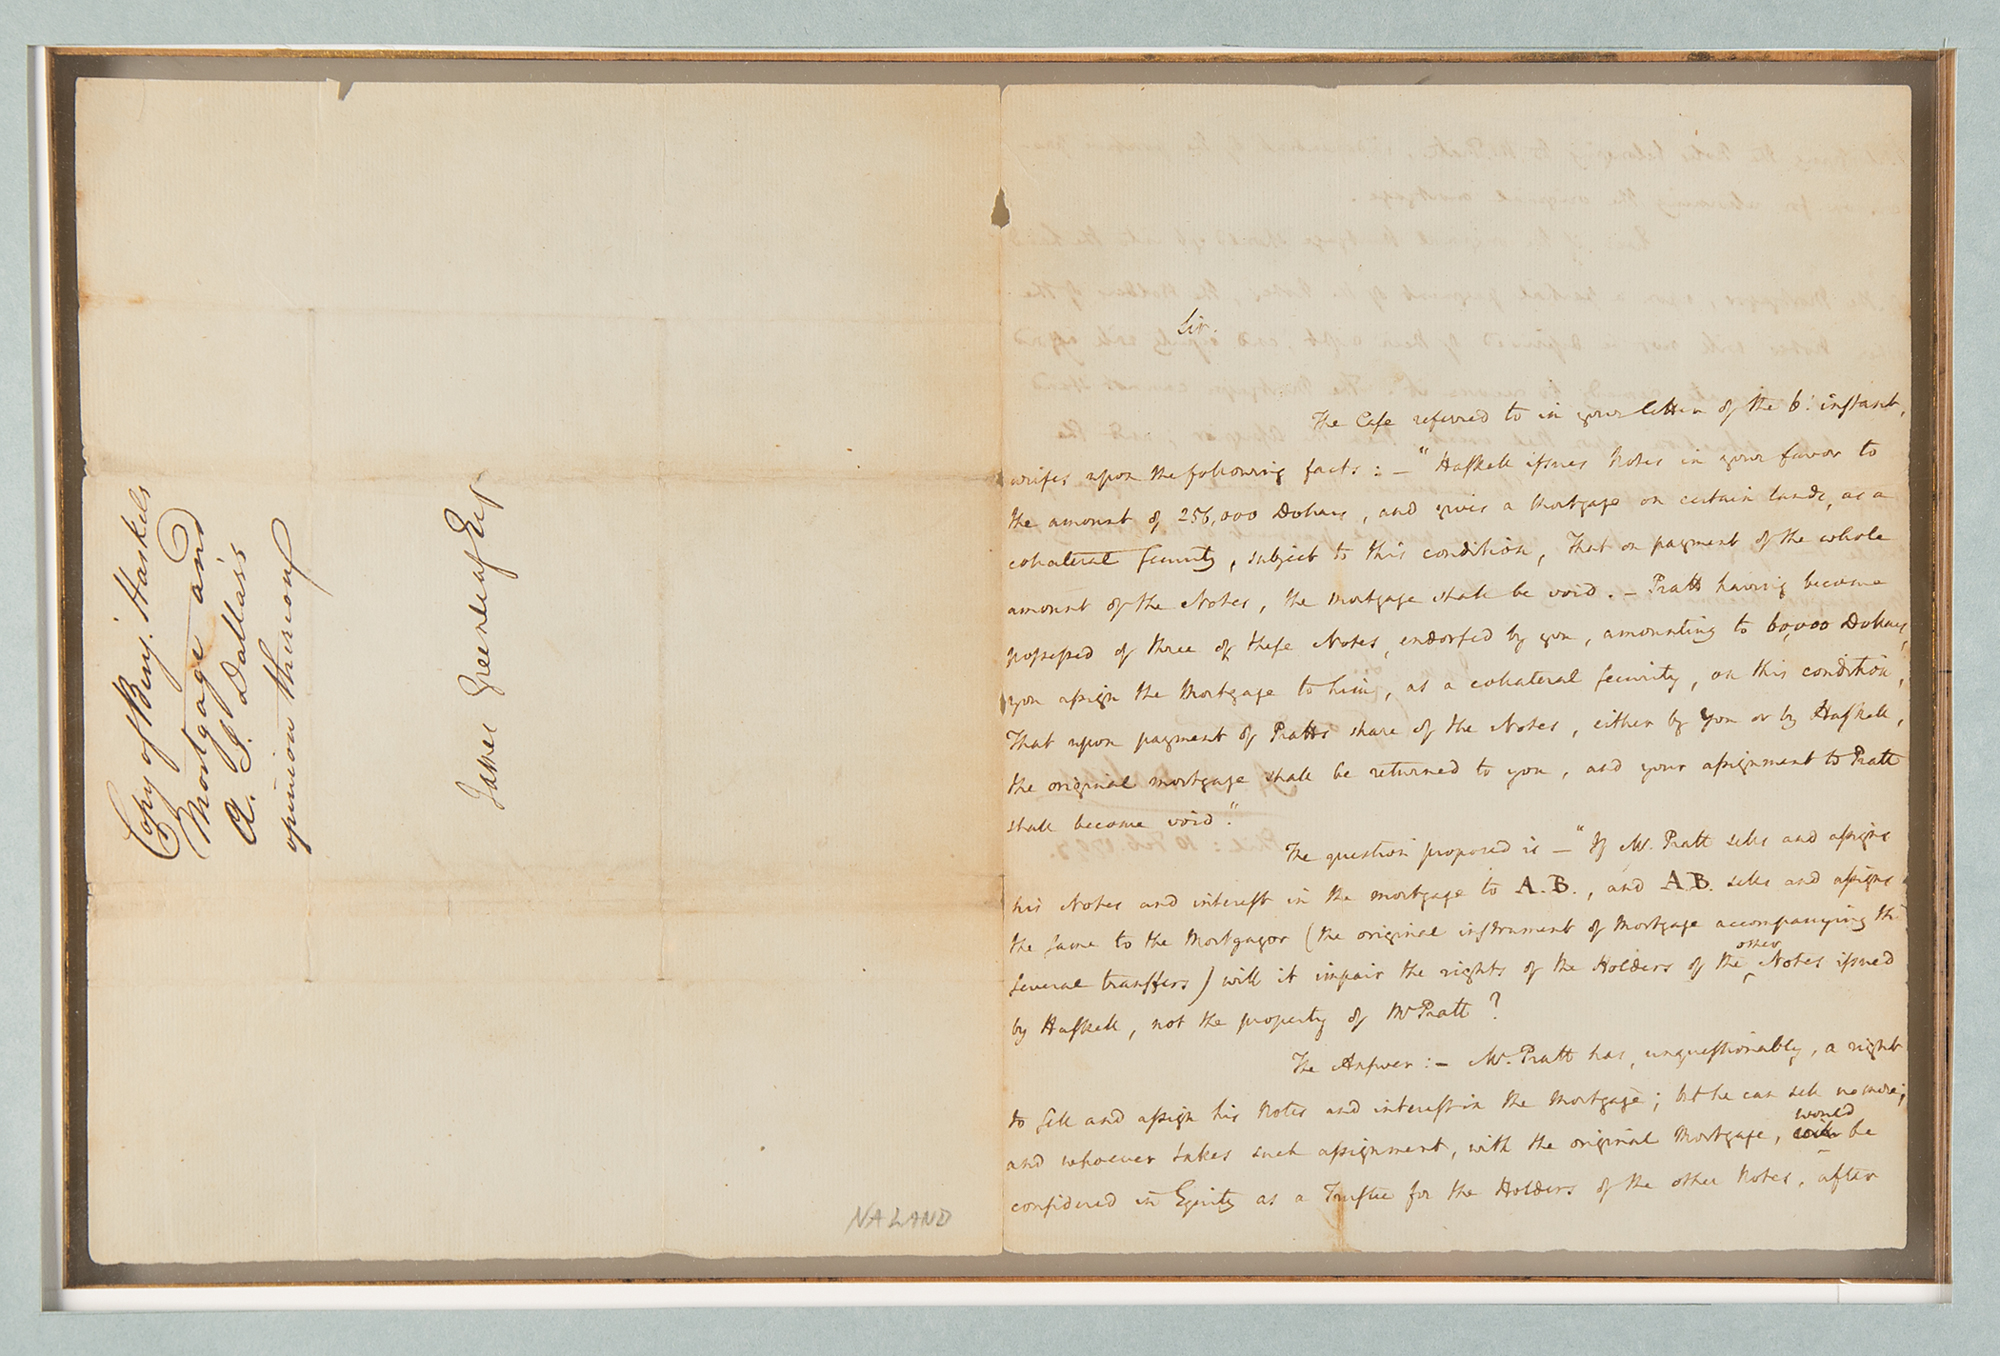 Copy of Benj. Haskels
Mortgage and
A. J. Dallas's
opinion thereon
James Greenleaf Esqr
NALAND
Sir.
The Case referred to in your letter of the 6. instant,
arises upon the following facts : — "Haskell issues Notes in your favor to
the amount of 256,000 Dollars, and gives a Mortgage on certain lands, as a
collateral security, subject to this condition, That on payment of the whole
amount of the Notes, the Mortgage shall be void. — Pratt having become
possessed of three of these Notes, endorsed by you, amounting to 60,000 Dollars,
you assign the Mortgage to him, as a collateral security, on this condition,
That upon payment of Pratts share of the Notes, either by you or by Haskell,
the original mortgage shall be returned to you, and your assignment to Pratt
shall become void."
The question proposed is — "If Mr. Pratt sells and assigns
his Notes and interest in the mortgage to A.B., and A.B. sells and assigns
the same to the Mortgagor (the original instrument of Mortgage accompanying the
several transfers) will it impair the rights of the Holders of the other Notes issued
by Haskell, not the property of Mr Pratt ?
The Answer : — Mr. Pratt has, unquestionably, a right
to sell and assign his Notes and interest in the Mortgage ; but he can sell no more ;
and whoever takes such assignment, with the original Mortgage, would be
considered in Equity as a Trustee for the Holders of the other Notes, after